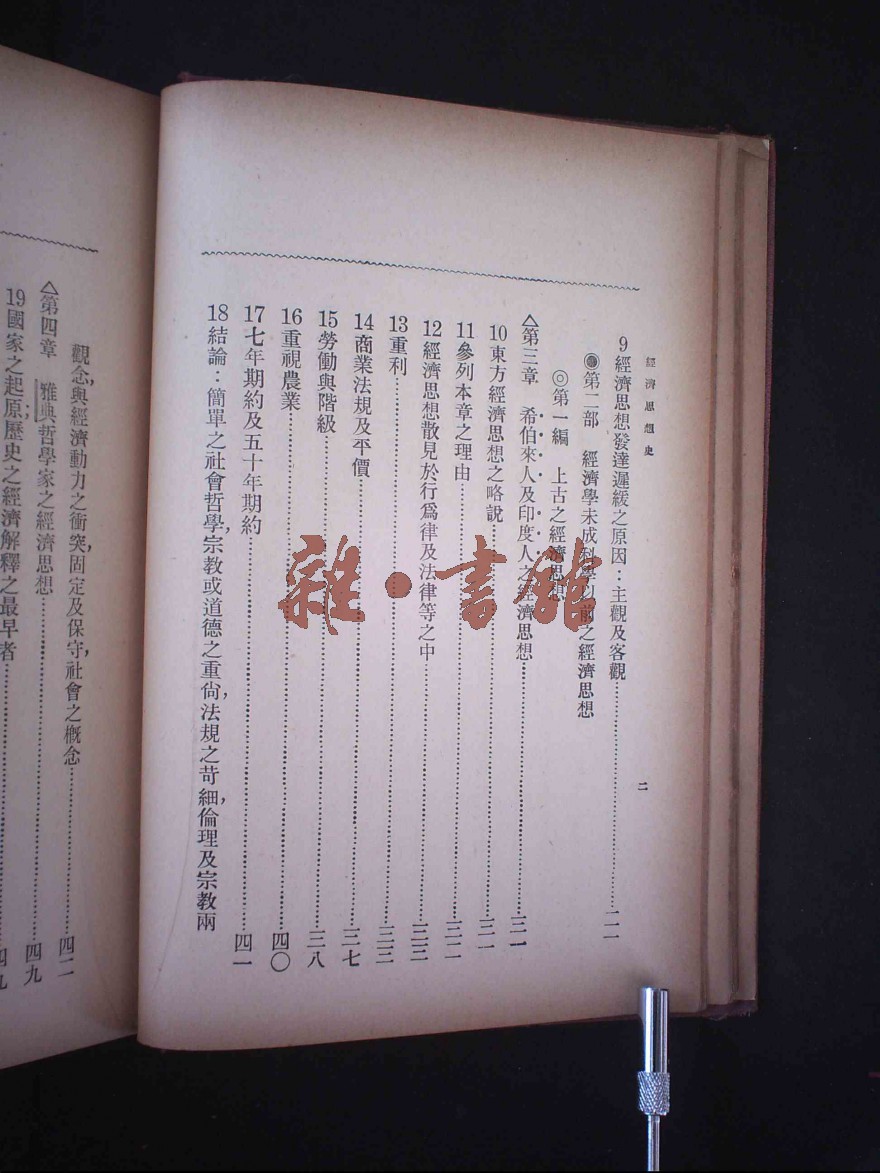 經濟思想史
二
9經濟思想發達遲緩之原因：主觀及客觀……二一
●第二部　經濟學未成科學以前之經濟思想
◎第一編　上古之經濟思想
△第三章　希伯來人及印度人之經濟思想……三一
10東方經濟思想之略說……三一
11參列本章之理由……三二
12經濟思想散見於行爲律及法律等之中……三三
13重利……三三
14商業法規及平價……三七
15勞働與階級……三八
16重視農業……四〇
17七年期約及五十年期約……四一
18結論：簡單之社會哲學,宗教或道德之重尙,法規之苛細,倫理及宗教兩
觀念,與經濟動力之衝突,固定及保守,社會之概念……四二
△第四章　雅典哲學家之經濟思想……四九
19國家之起原;歷史之經濟解釋之最早者……四九
雜·書館